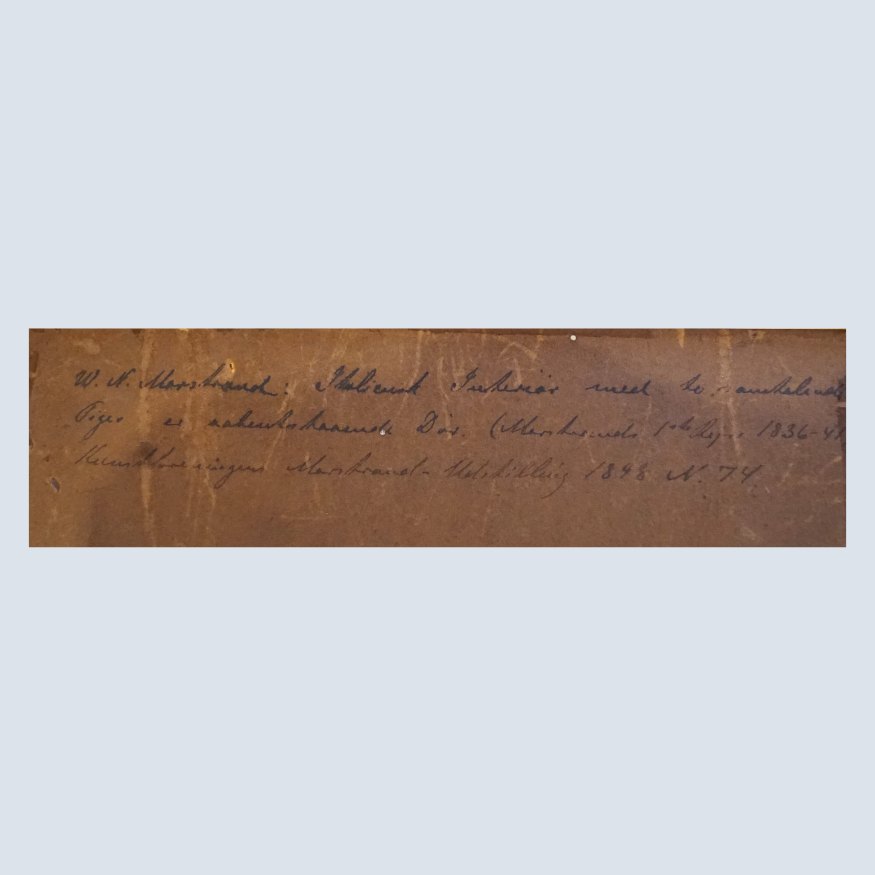 W. N. Marstrand: Italiensk Interiør med to samtalende
Piger aabentstaaende Dør. (Marstrands 1ste Rejse 1836-41
Kunstforeningens Marstrand-Udstilling 1898 N. 74